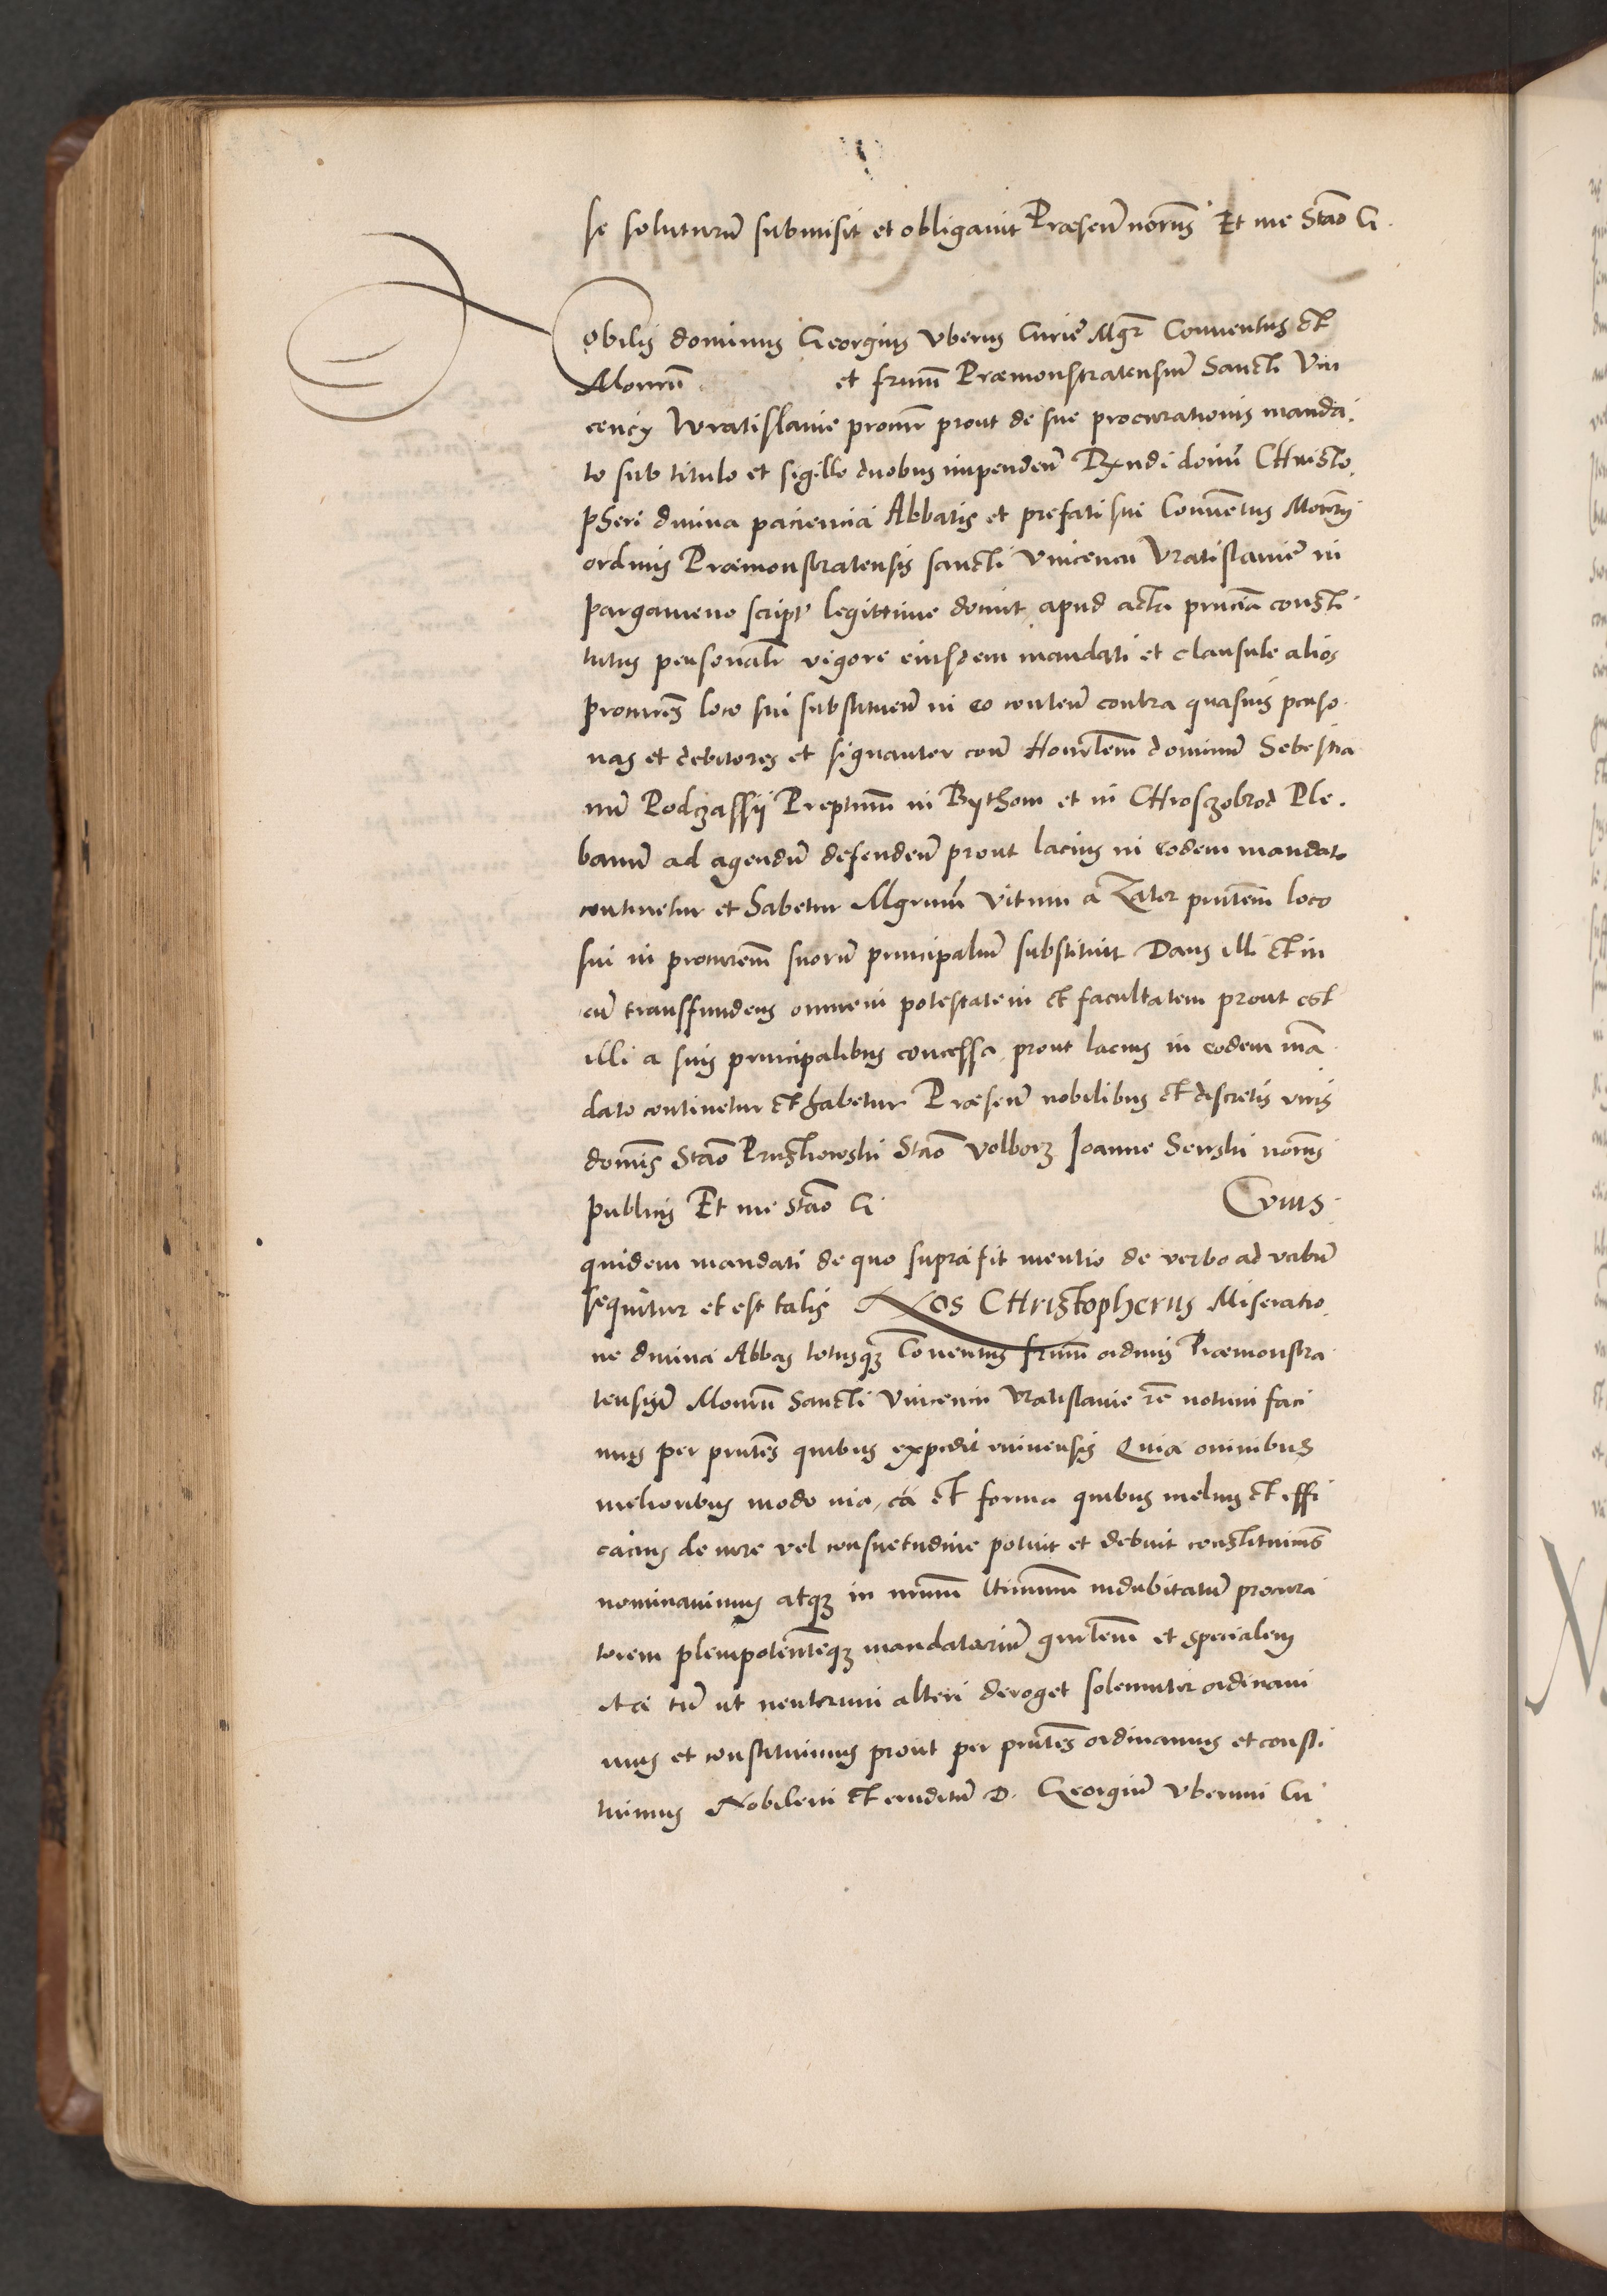 se soluturū submisit et obligavit Præsen̄ norijs Et me Stao G.
Nobilis dominus Georgius Uberus Curie Mgr̄ Conventus et
Mon̄rij et frūm Præmonstratensium Sancti Vin
cencij Wratislavie procur̄ prout de sue procurationis manda
to sub titulo et sigillo duobus impenden̄ Rx̄ndi domī CHristo
pheri divina paciencia Abbatis et prefati sui Conventus Mon̄rij
ordinis Præmonstratensis sancti Vincencii Vratislavie in
pargameno script legittime docuit, apud acta pn̄cia consti
tutus personalr̄ vigore eiusdem mandati et clausule alios
procures̄ loco sui substituen̄ in eo conten̄ contra quasvis perso
nas et debitores et signanter con̄ Honr̄lem dominū Sebestia
nū Podczassij Preptum̄ in Bythom et in CHroszobrod Ple
banū ad agendū defenden̄ prout lacius in eodem mandato
continetur et habetur Mgrum̄ Vitum a Zator pn̄tem loco
sui in procurem̄ suorū principaliū substituit Dans illi et in
eū transfundens omnem potestatem et facultatem prout est
illi a suis principalibus concessa, prout lacius in eodem mā
dato continetur et habetur Præsen̄ nobilibus et discretis viris
domis̄ Stao Pruszkowski Stao Volborz Joanne Senski noris̄
publicis Et me Stao G. Cuius
quidem mandati de quo supra fit mentio de verbo ad verbū
sequitur et est talis Nos CHristopherus Miseratio
ne divina Abbas totusq̄ Conventus frūm ordinis Præmonstra
tensium̄ Mon̄rij Sancti Vincencii Vratislavie rē notum faci
mus per pn̄tes quibus expedit universis Quia omnibus
melioribus modo via, cā et forma quibus melius et effi
cacius de iure vel consuetudine potuit et debuit constituimus
nominavimus atq̄ in nrum̄ ltimum̄ indubitatū procura
torem plenipotentēq̄ mandatariū gnr̄lem et specialem
ita tn̄ ut neutrum alteri deroget solemniter ordinavi
mus et constituimus prout per pn̄tes ordinamus et consti
tuimus Nobilem et eruditū D. Georgiū Uberum Cu